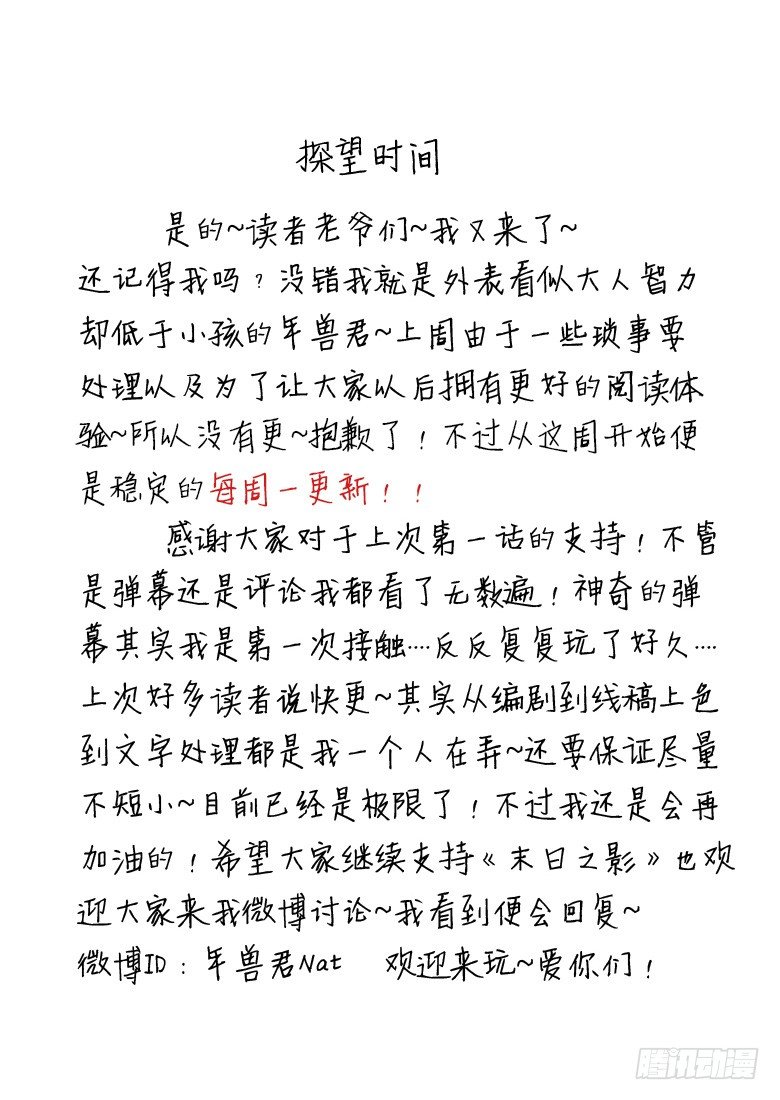 探望时间
是的~读者老爷们~我又来了~
还记得我吗？没错我就是外表看似大人智力
却低于小孩的年兽君~上周由于一些琐事要
处理以及为了让大家以后拥有更好的阅读体
验~所以没有更~抱歉了！不过从这周开始便
是稳定的每周一更新！！
感谢大家对于上次第一话的支持！不管
是弹幕还是评论我都看了无数遍！神奇的弹
幕其实我是第一次接触····反反复复玩了好久····
上次好多读者说快更~其实从编剧到线稿上色
到文字处理都是我一个人在弄~还要保证尽量
不短小~目前已经是极限了！不过我还是会再
加油的！希望大家继续支持《末日之影》也欢
迎大家来我微博讨论~我看到便会回复~
微博ID：年兽君Nat 欢迎来玩~爱你们！
腾讯动漫